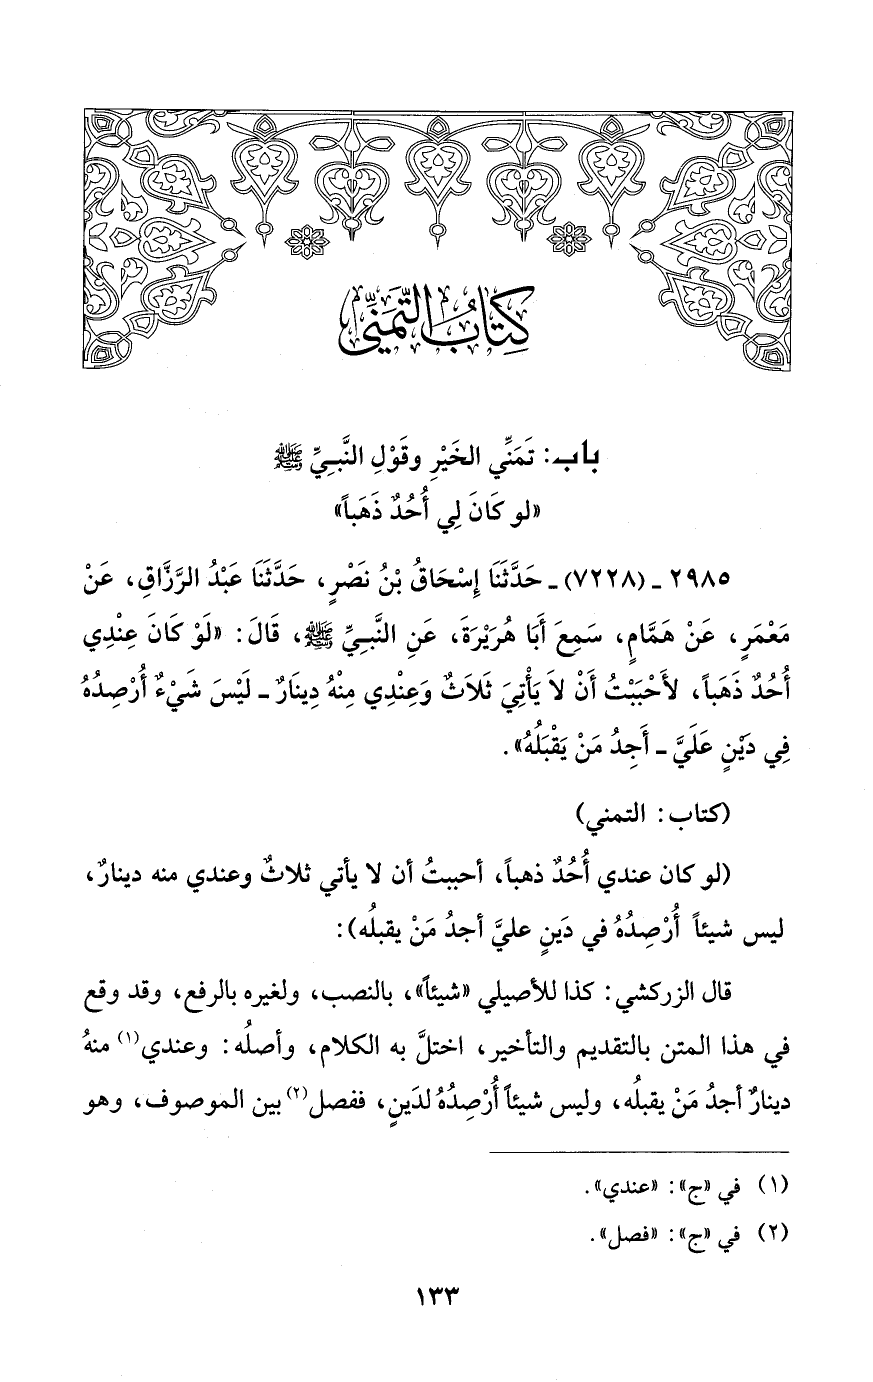 كِتَابُ التَّمَنِّي
باب: تَمَنِّي الخَيْرِ وقَوْلِ النَّبِيِّ ﷺ
«لو كَانَ لِي أُحُدٌ ذَهَباً»
٢٩٨٥ ـ (٧٢٢٨) ـ حَدَّثَنَا إِسْحَاقُ بْنُ نَصْرٍ، حَدَّثَنَا عَبْدُ الرَّزَّاقِ، عَنْ
مَعْمَرٍ، عَنْ هَمَّامٍ، سَمِعَ أَبَا هُرَيْرَةَ، عَنِ النَّبِيِّ ﷺ، قَالَ: «لَوْ كَانَ عِنْدِي
أُحُدٌ ذَهَباً، لأَحْبَبْتُ أَنْ لاَ يَأْتِيَ ثَلاَثٌ وَعِنْدِي مِنْهُ دِينَارٌ ـ لَيْسَ شَيْءٌ أُرْصِدُهُ
فِي دَيْنٍ عَلَيَّ ـ أَجِدُ مَنْ يَقْبَلُهُ».
(كتاب: التمني)
(لو كان عندي أُحُدٌ ذهباً، أحببتُ أن لا يأتي ثلاثٌ وعندي منه دينارٌ،
ليس شيئاً أُرْصِدُهُ في دَينٍ عليَّ أجدُ مَنْ يقبلُه):
قال الزركشي: كذا للأصيلي «شيئاً»، بالنصب، ولغيره بالرفع، وقد وقع
في هذا المتن بالتقديم والتأخير، اختلَّ به الكلام، وأصلُه: وعندي(١) منهُ
دينارٌ أجدُ مَنْ يقبلُه، وليس شيئاً أُرْصِدُهُ لدَينٍ، ففصل(٢) بين الموصوف، وهو
(١) في «ج»: «عندي».
(٢) في «ج»: «فصل».
١٣٣